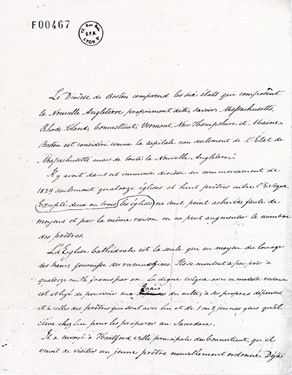 F00467
12, Rue Sala
O.P.M.
LYON
Le Diocèse de Boston comprend les six états qui composent
la Nouvelle Angleterre proprement dite, savoir Massachusetts,
Rhode Island, Connecticut, Vermont, New Hampshire et Maine.
Boston est considéré comme la capitale non seulement de l'Etat de
Massachusetts mais de toute la Nouvelle Angleterre.
Il y avait dans cet immense diocèse au commencement de
1829 seulement quatorze églises et huit prêtres outre l'Evêque
Excepté deux ou trois les églises ne sont point achevées faute de
moyens et par la même raison on ne peut augmenter le nombre
des prêtres.
La Eglise Cathédrale est la seule que au moyen du louage
des bancs fournisse des revenus fixes. Ils se montent à peu près à
quatorze mille francs par an. Le digne évêque avec ce modeste revenu
est obligé de pourvoir aux frais du culte, à ses propres dépenses et
à celles des prêtres qui sont avec lui et de jeunes gens qu'il
élève chez lui pour les préparer au Sacerdoce.
Il a envoyé à Hartford ville principale du Connecticut, qu'il
vient de visiter un jeune prêtre nouvellement ordonné. Déjà